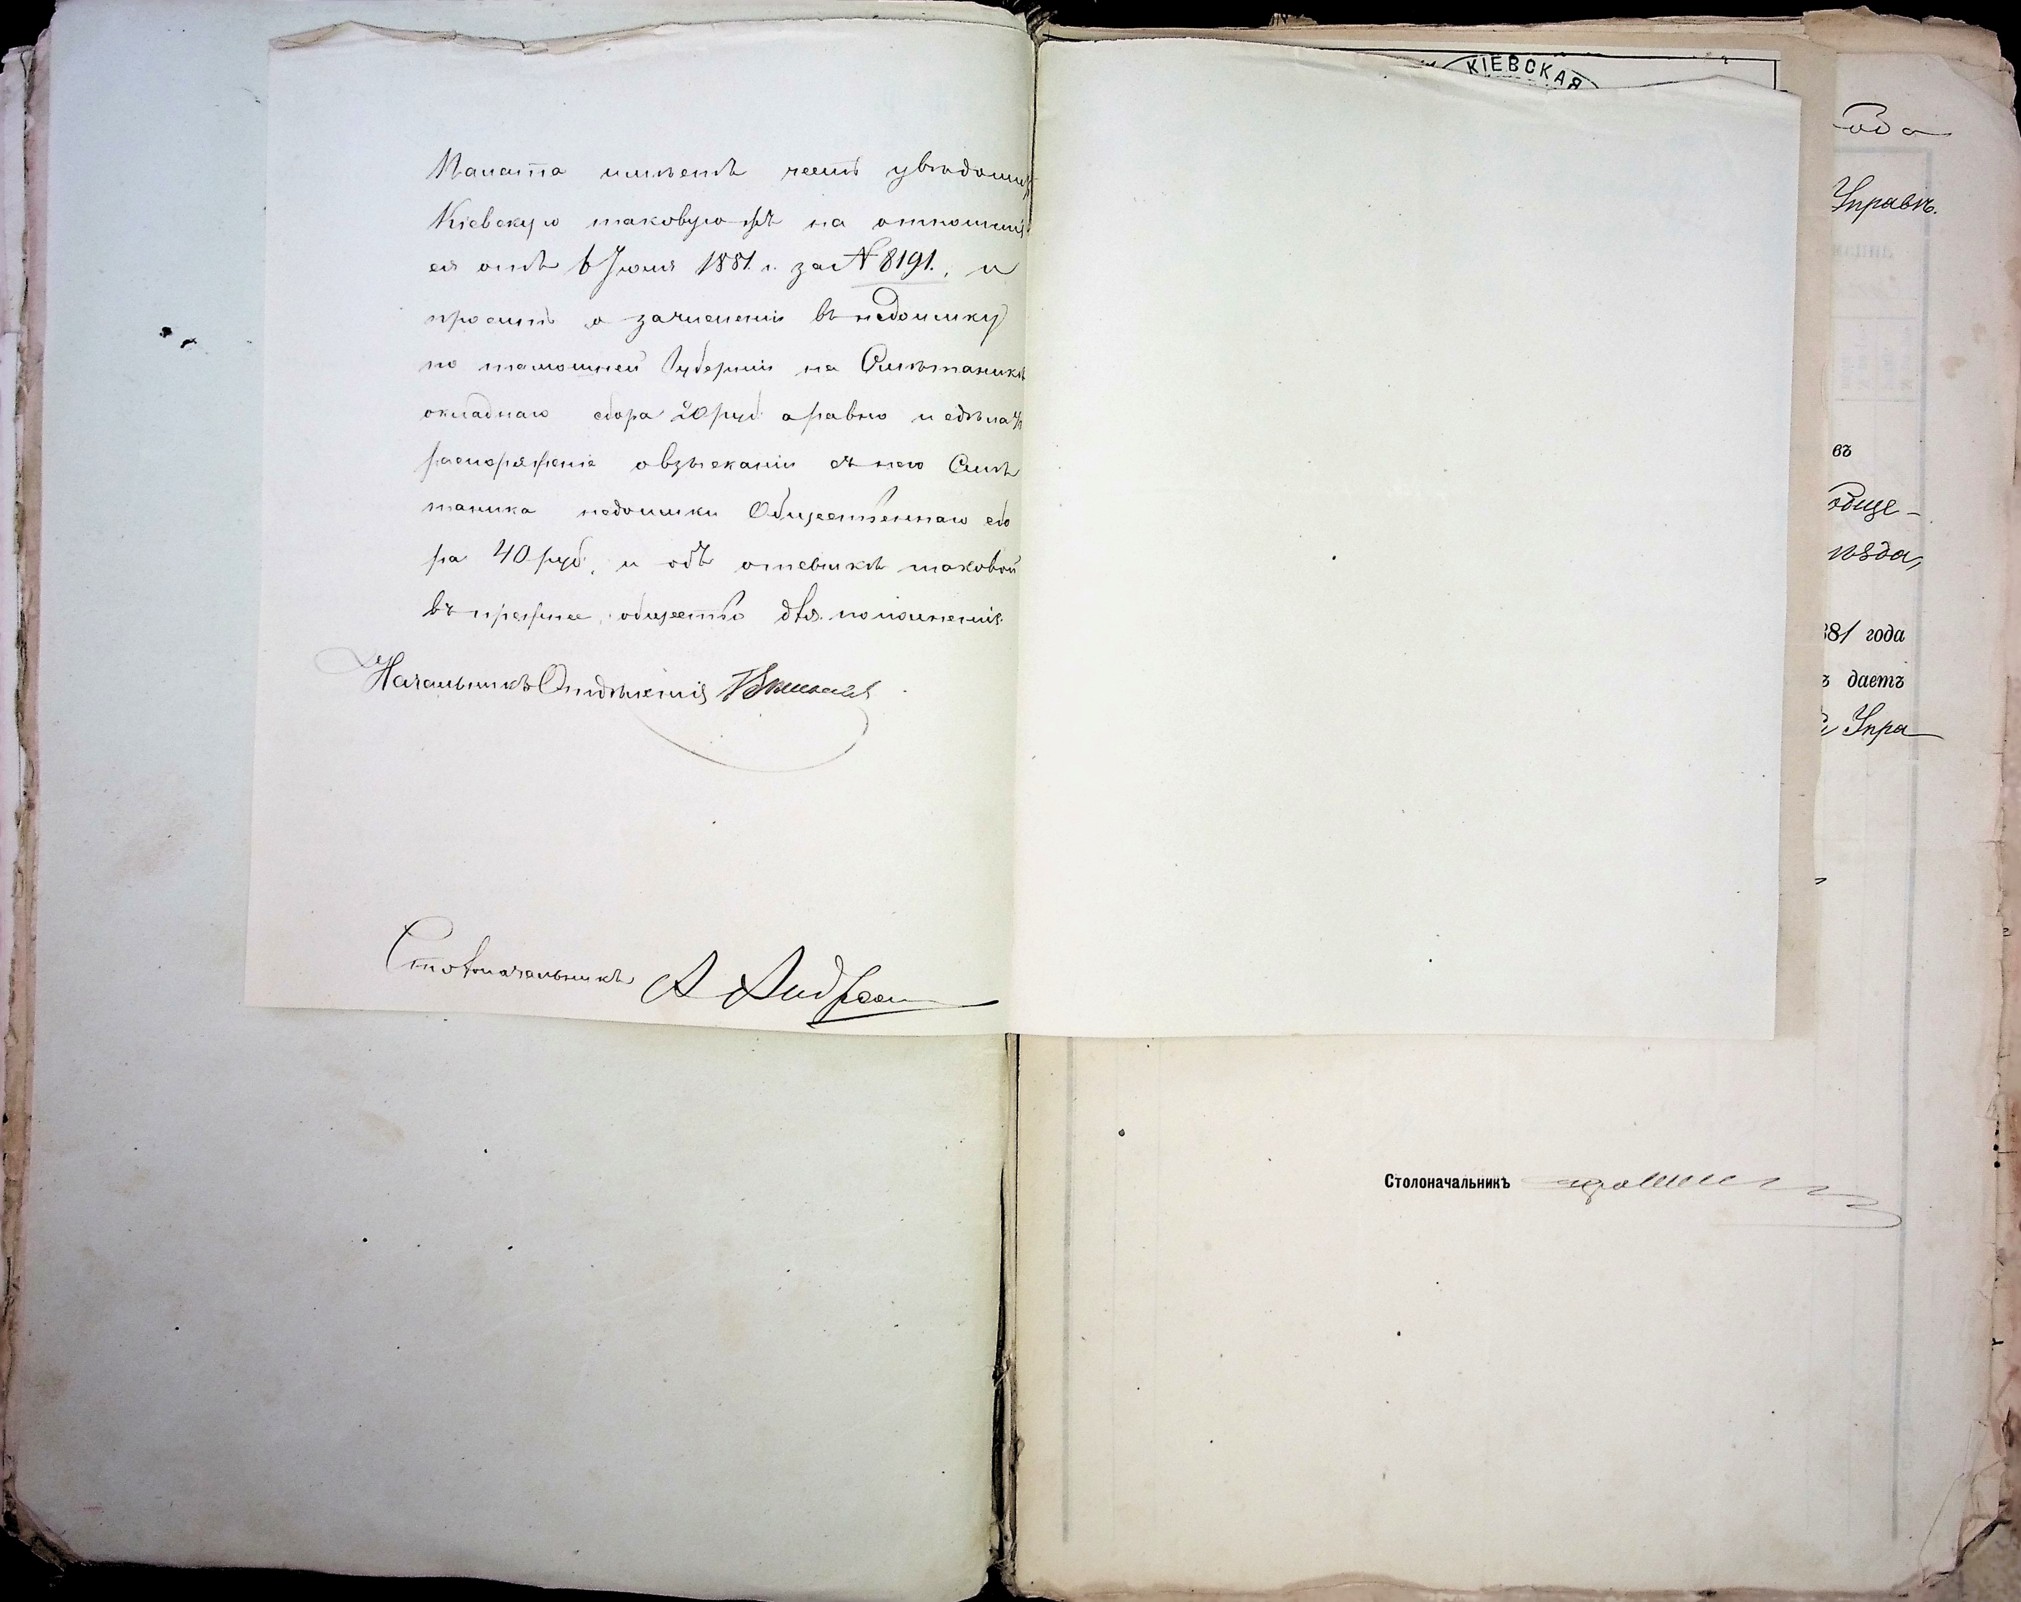 Палата имѣетъ честь увѣдомить
Кіевскую таковую-же на отношеніе
ея отъ 6 Іюля 1881 г. за № 8191, и
проситъ о зачисленіи въ недоимку
по тамошней Губерніи на Смѣтаникѣ
окладнаго сбора 20 руб. а равно и сдѣлать
распоряженіе о взысканіи съ него Смѣ
таника недоимки Общественнаго сбо
ра 40 руб., и объ отсылкѣ таковой
въ прежнее общество для пополненія.
Начальникъ Отдѣленія
Столоначальникъ А Андр
КІЕВСКАЯ
года
Управѣ.
въ
обще-
уѣзда,
881 года
ъ даетъ
Упра
Столоначальникъ